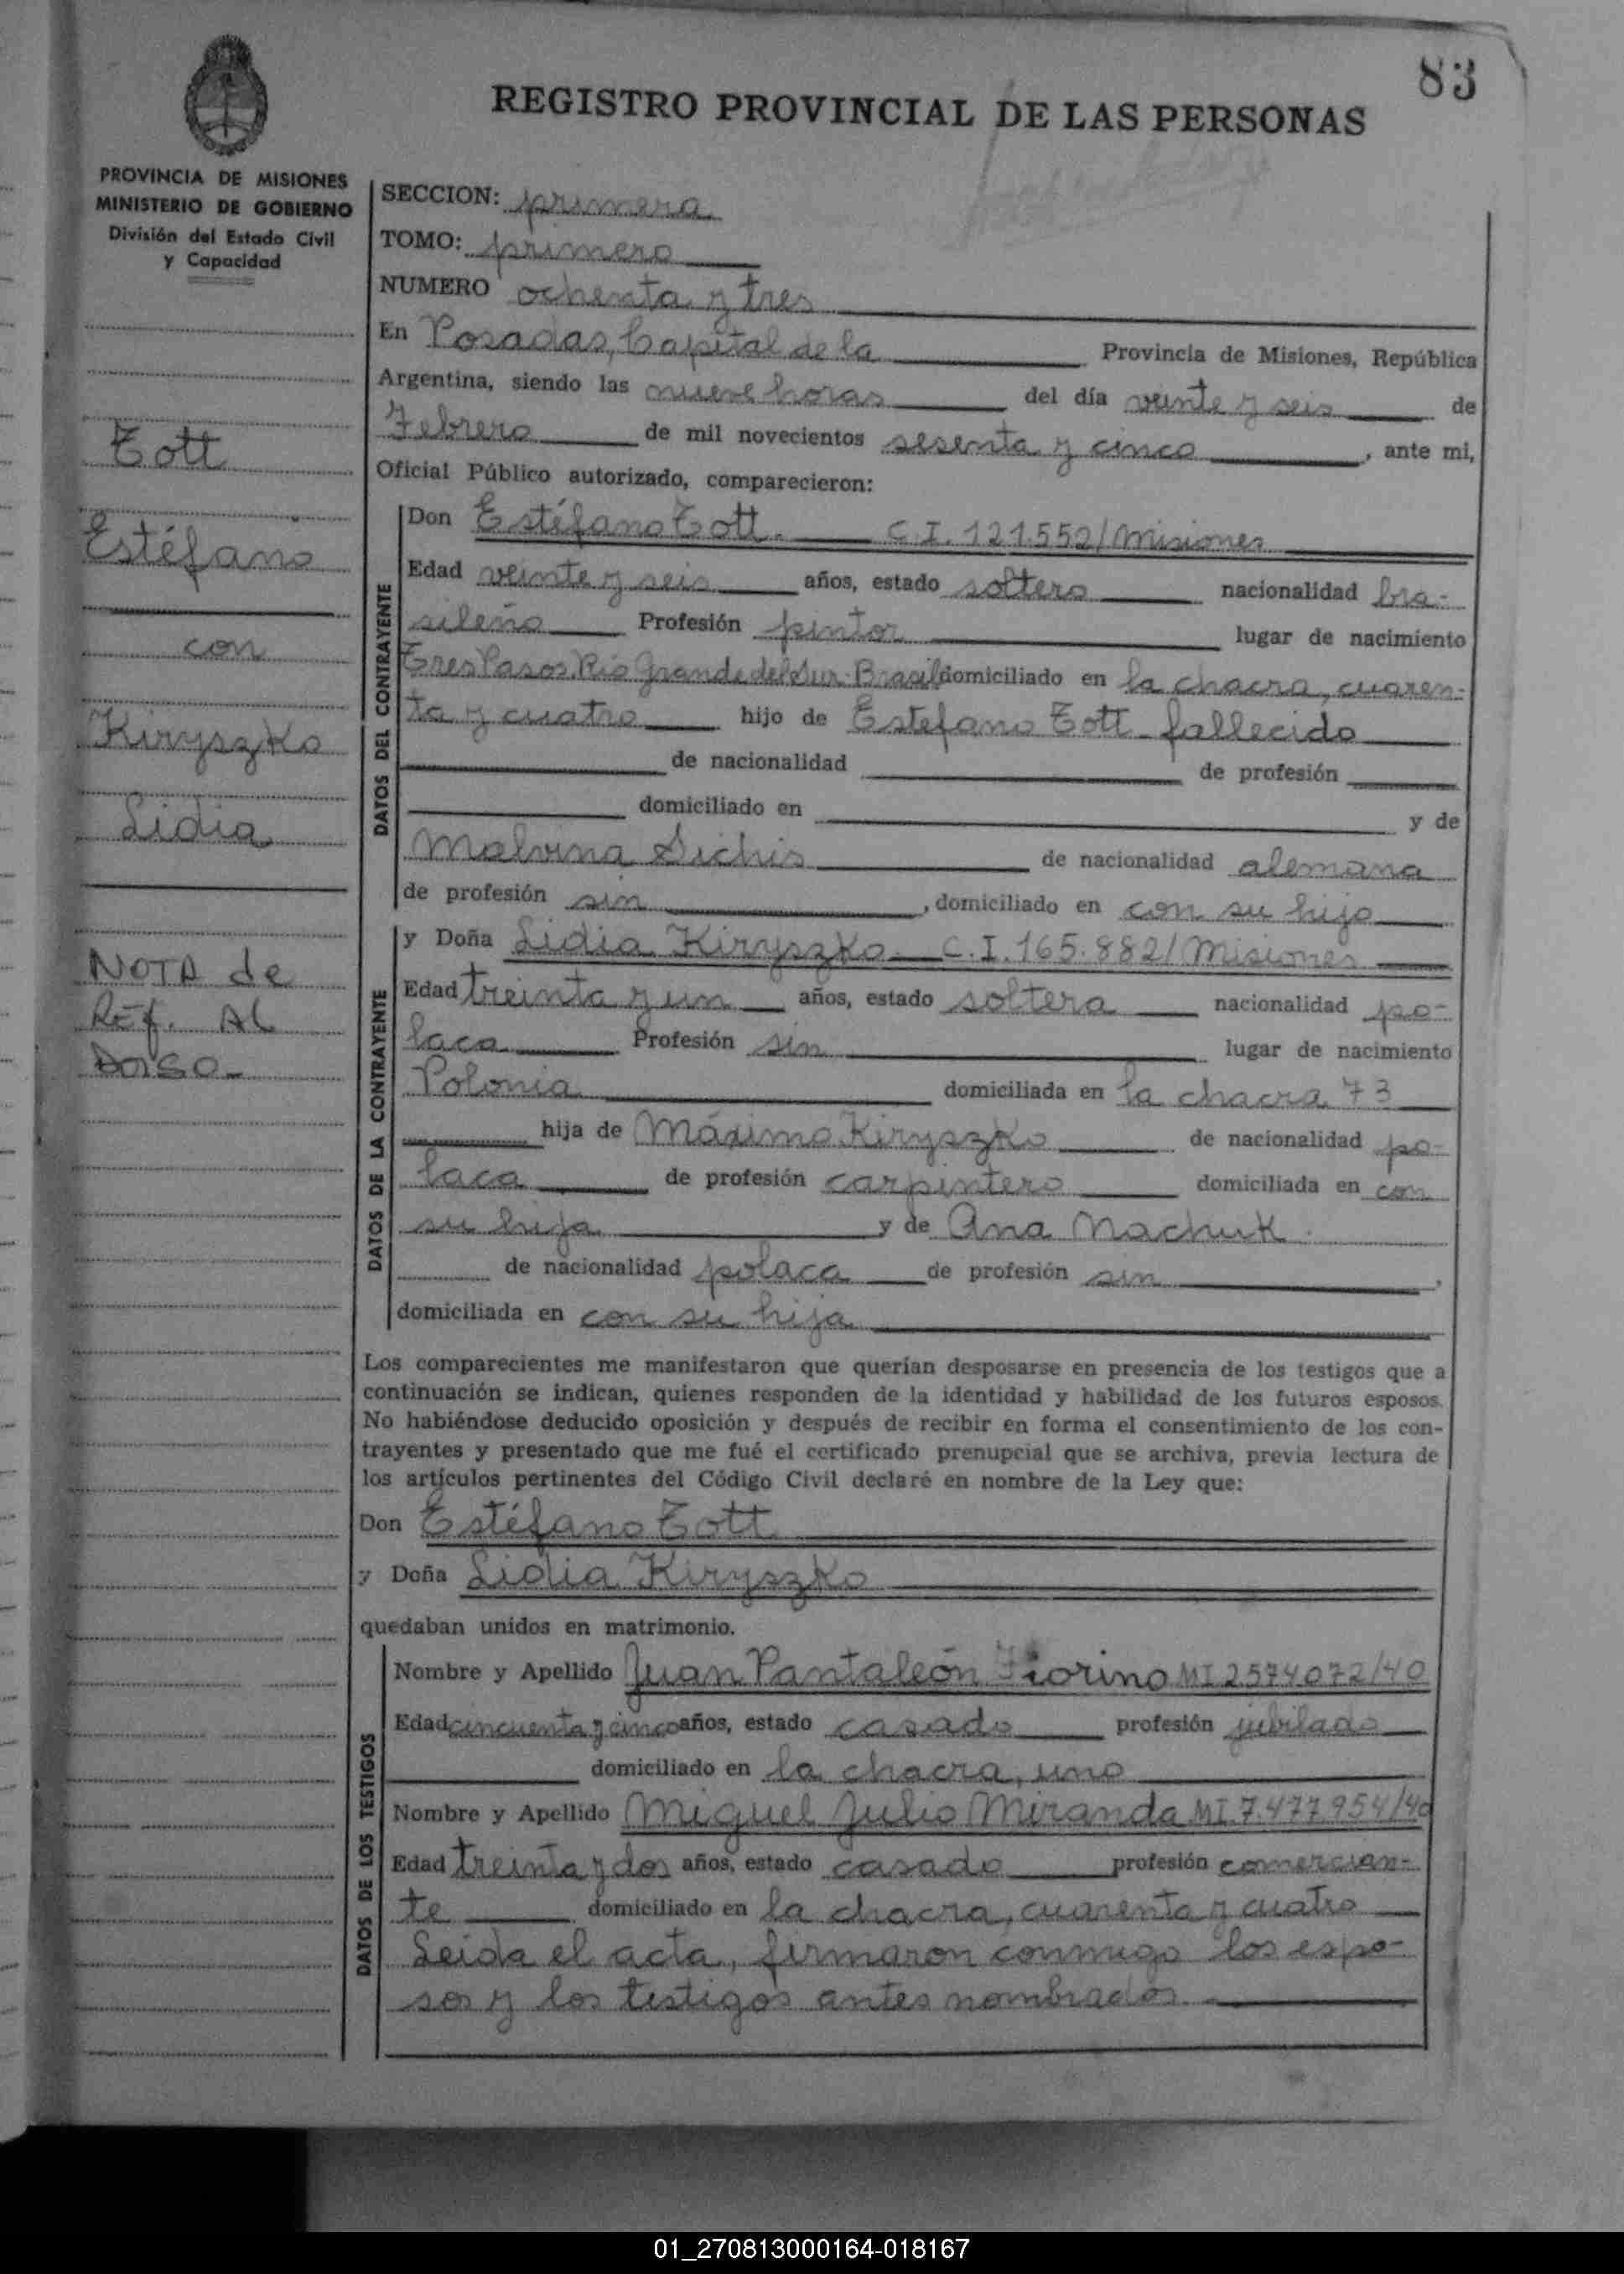 83
REGISTRO PROVINCIAL DE LAS PERSONAS
PROVINCIA DE MISIONES
MINISTERIO DE GOBIERNO
División del Estado Civil
y Capacidad
Tott
Estéfano
con
Kiryszko
Lidia
NOTA de
Ref. Al
DORSO-
SECCION: primera
TOMO: primero
NUMERO ochenta y tres
En Posadas, Capital de la Provincia de Misiones, República
Argentina, siendo las nueve horas del día veinte y seis de
Febrero de mil novecientos sesenta y cinco, ante mi,
Oficial Público autorizado, comparecieron:
DATOS DEL CONTRAYENTE
Don Estéfano Tott. C.I. 121.552/Misiones
Edad veinte y seis años, estado soltero nacionalidad bra-
sileño Profesión pintor lugar de nacimiento
Tres Pasos. Río Grande del Sur. Brasil domiciliado en la chacra, cuaren-
ta y cuatro hijo de Estefano Tott - fallecido
de nacionalidad de profesión
domiciliado en y de
Malvina Sichis de nacionalidad alemana
de profesión sin, domiciliado en con su hijo
DATOS DE LA CONTRAYENTE
y Doña Lidia Kiryszko C.I. 165.882/Misiones
Edad treinta y un años, estado soltera nacionalidad po-
laca Profesión sin lugar de nacimiento
Polonia domiciliada en la chacra 73
hija de Máximo Kiryszko de nacionalidad po-
laca de profesión carpintero domiciliada en con
su hija y de Ana Nachuk.
de nacionalidad polaca de profesión sin,
domiciliada en con su hija
Los comparecientes me manifestaron que querían desposarse en presencia de los testigos que a
continuación se indican, quienes responden de la identidad y habilidad de los futuros esposos.
No habiéndose deducido oposición y después de recibir en forma el consentimiento de los con-
trayentes y presentado que me fué el certificado prenupcial que se archiva, previa lectura de
los artículos pertinentes del Código Civil declaré en nombre de la Ley que:
Don Estéfano Tott
y Doña Lidia Kiryszko
quedaban unidos en matrimonio.
DATOS DE LOS TESTIGOS
Nombre y Apellido Juan Pantaleón Fiorino MI 2574072/40
Edad cincuenta y cinco años, estado casado profesión jubilado
domiciliado en la chacra, uno
Nombre y Apellido Miguel Julio Miranda MI 7.477.954/40
Edad treinta y dos años, estado casado profesión comercian-
te domiciliado en la chacra, cuarenta y cuatro
Leida el acta, firmaron conmigo los espo-
sos y los testigos antes nombrados.
01_270813000164-018167